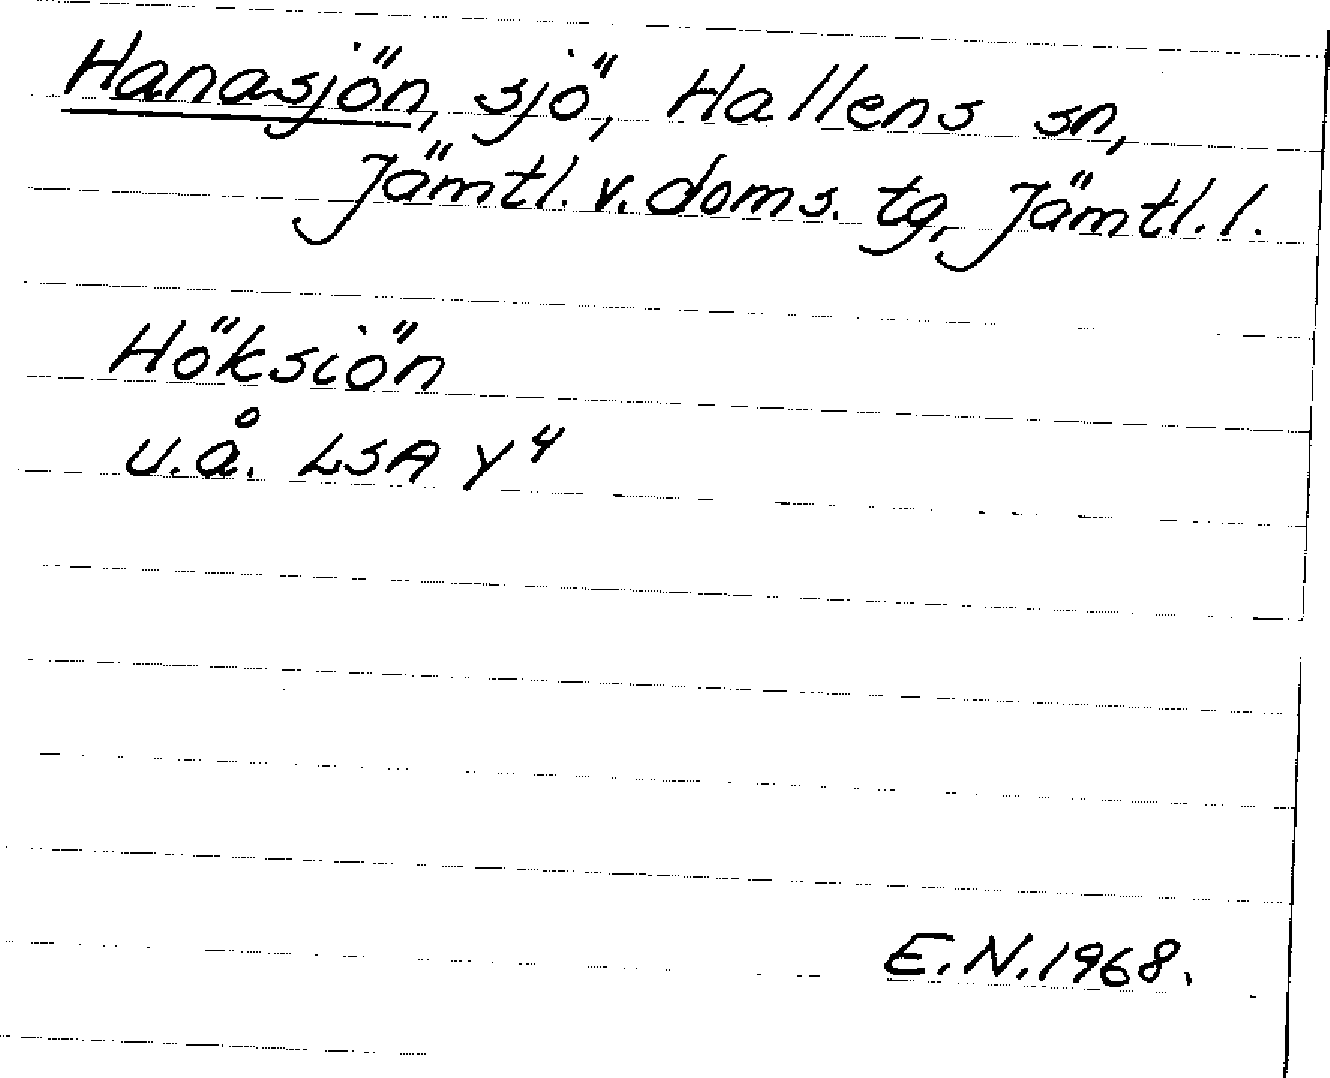 Hanasjön, sjö, Hallens sn,
Jämtl. v. doms. tg, Jämtl. l.
Höksiön
u.å. LSA Y4
E.N. 1968.